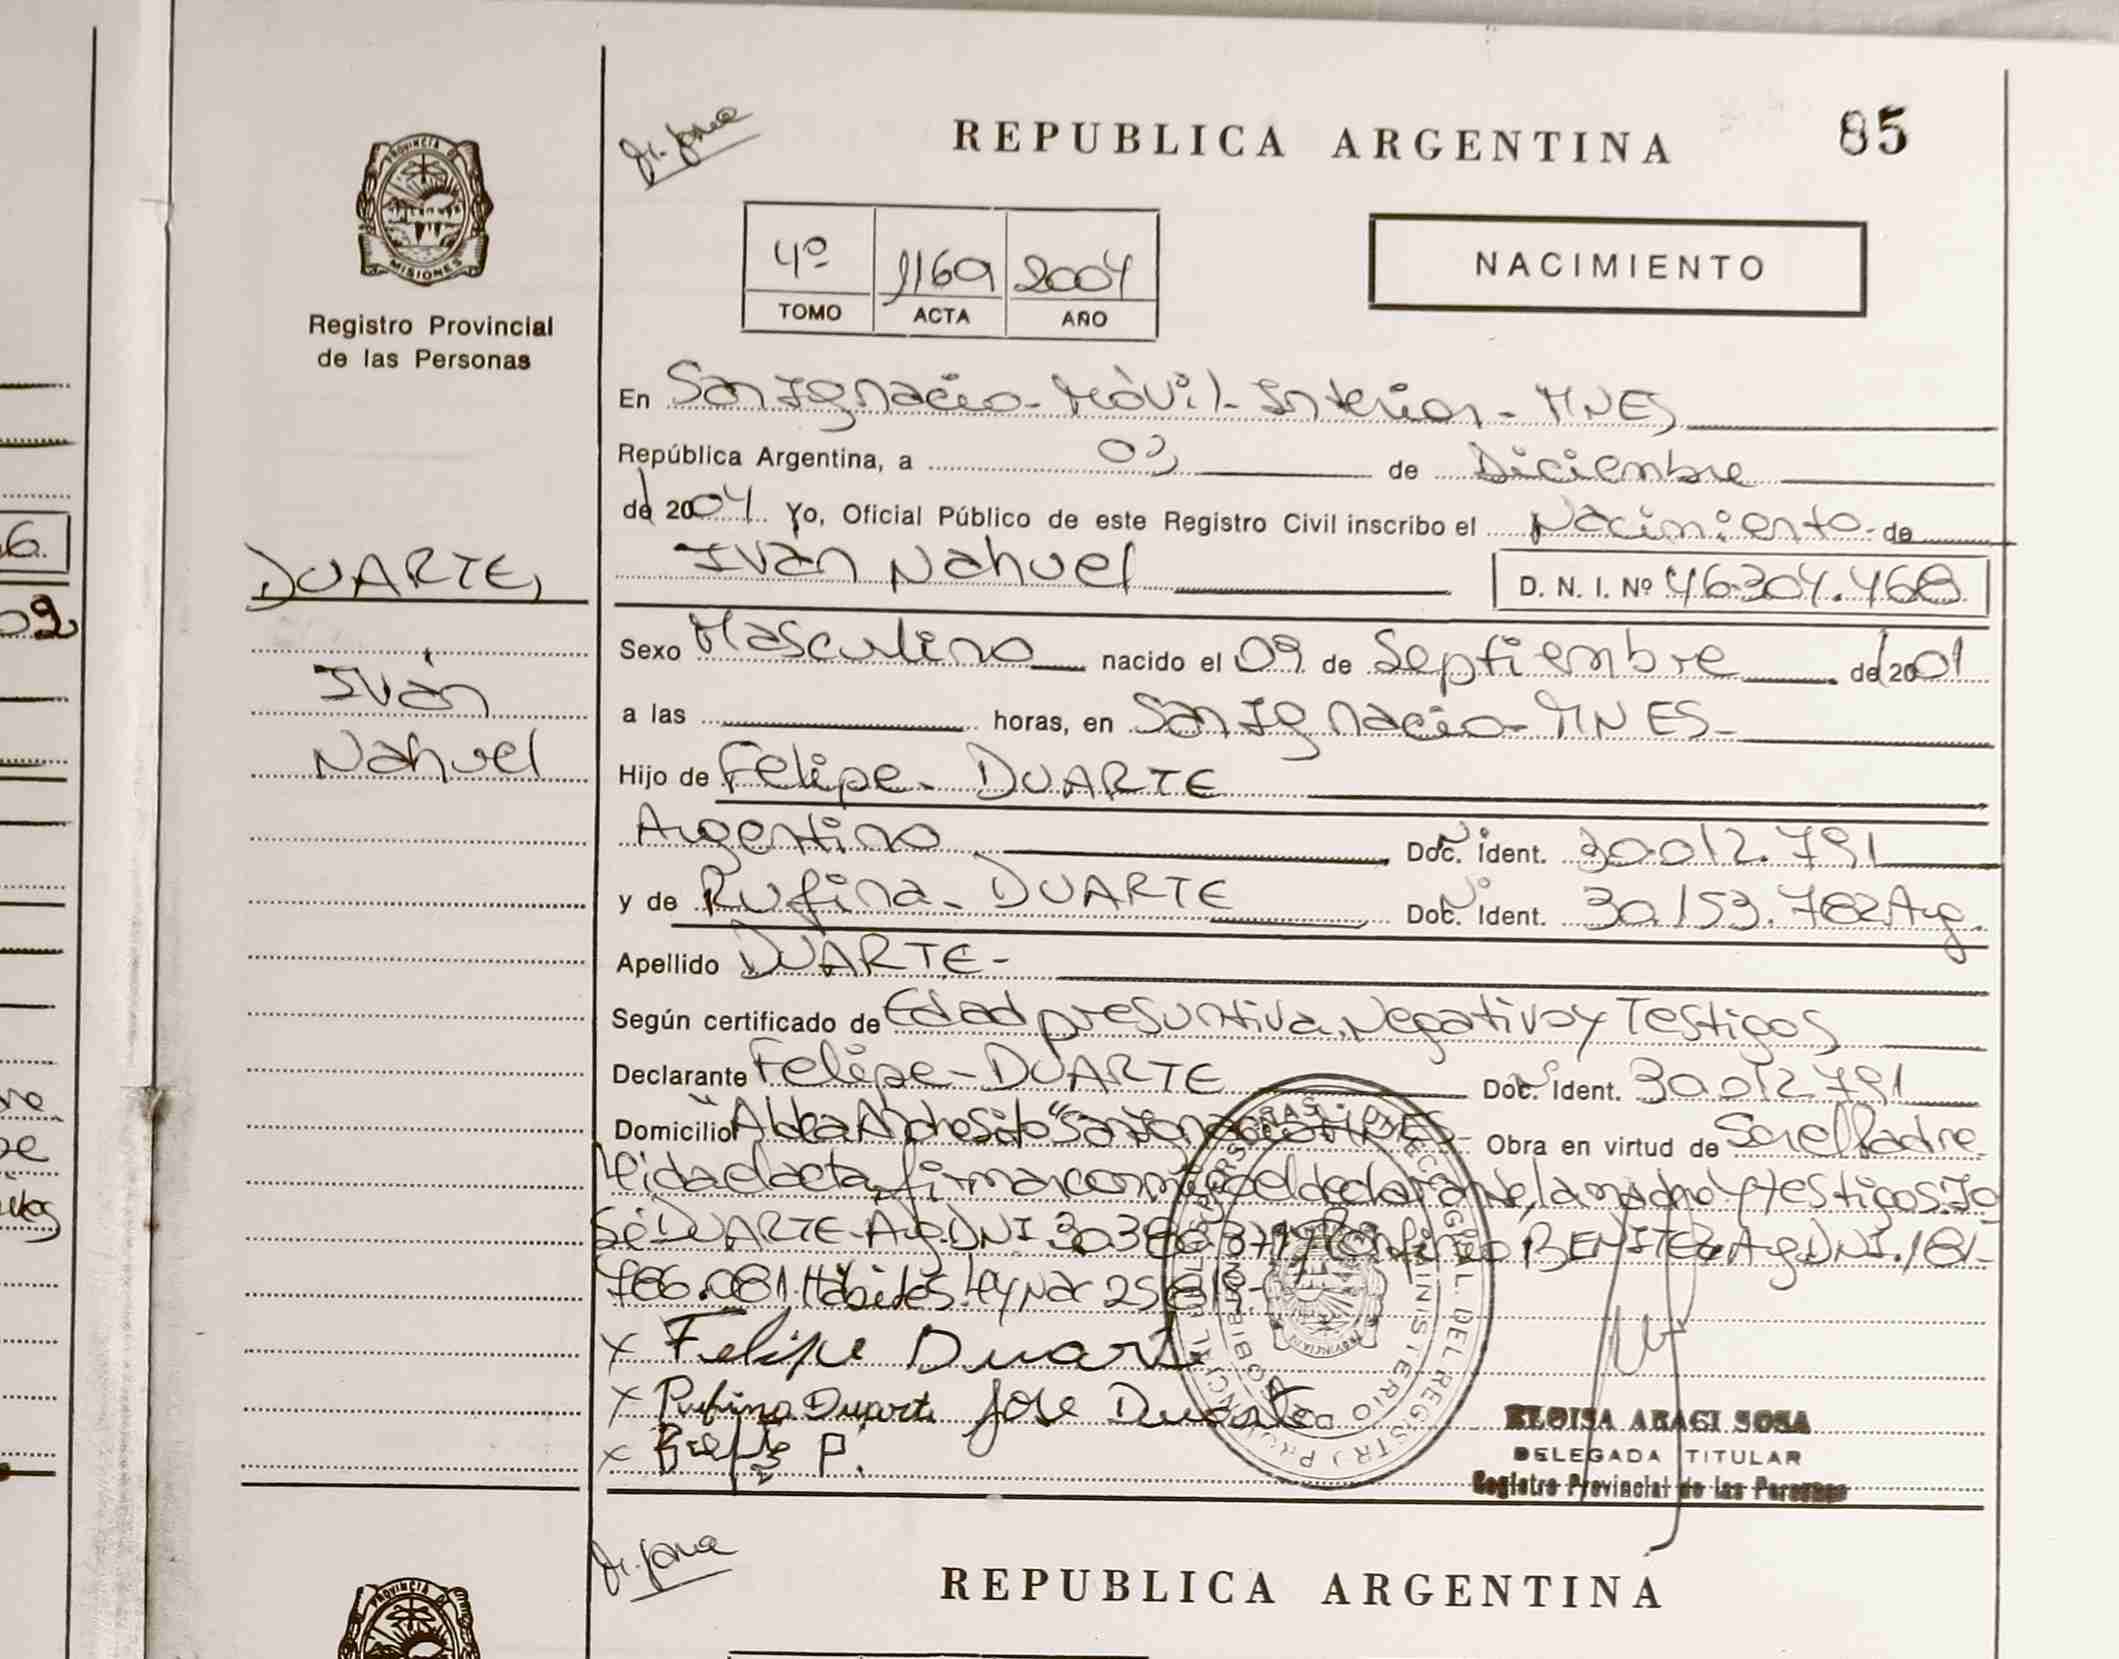 Dr. Jona
REPUBLICA ARGENTINA
85
PROVINCIA DE
MISIONES
Registro Provincial
de las Personas
4º 1169 2004
TOMO ACTA AÑO
NACIMIENTO
En San Ignacio - Móvil - Interior - MNES
República Argentina, a 03 de Diciembre
de 2004 Yo, Oficial Público de este Registro Civil inscribo el Nacimiento de
DUARTE,
Iván
Nahuel
Iván Nahuel D. N. I. Nº 46.304.468
Sexo Masculino nacido el 09 de Septiembre de 2001
a las horas, en San Ignacio - MNES -
Hijo de Felipe - DUARTE
Argentino Doc. Nº Ident. 30.012.791
y de Rufina - DUARTE Doc. Nº Ident. 30.153.782 Arg.
Apellido DUARTE -
Según certificado de Edad presuntiva, Negativo y Testigos
Declarante Felipe - DUARTE Doc. Nº Ident. 30.012.791
Domicilio "Aldea Andresito" San Ignacio MNES - Obra en virtud de Ser el Padre
leida el acta, firman conmigo el declarante, la madre y testigos: Jo
sé DUARTE - Arg. DNI BENITEZ Arg. DNI. 18.-
786.081. Ley Nac 25.819 -
x Felipe Duarte
x Rufina Duarte Jose Duarte
x P.
ELOISA ARAGI SOSA
DELEGADA TITULAR
Registro Provincial de las Personas
REPUBLICA ARGENTINA
PROVINCIA